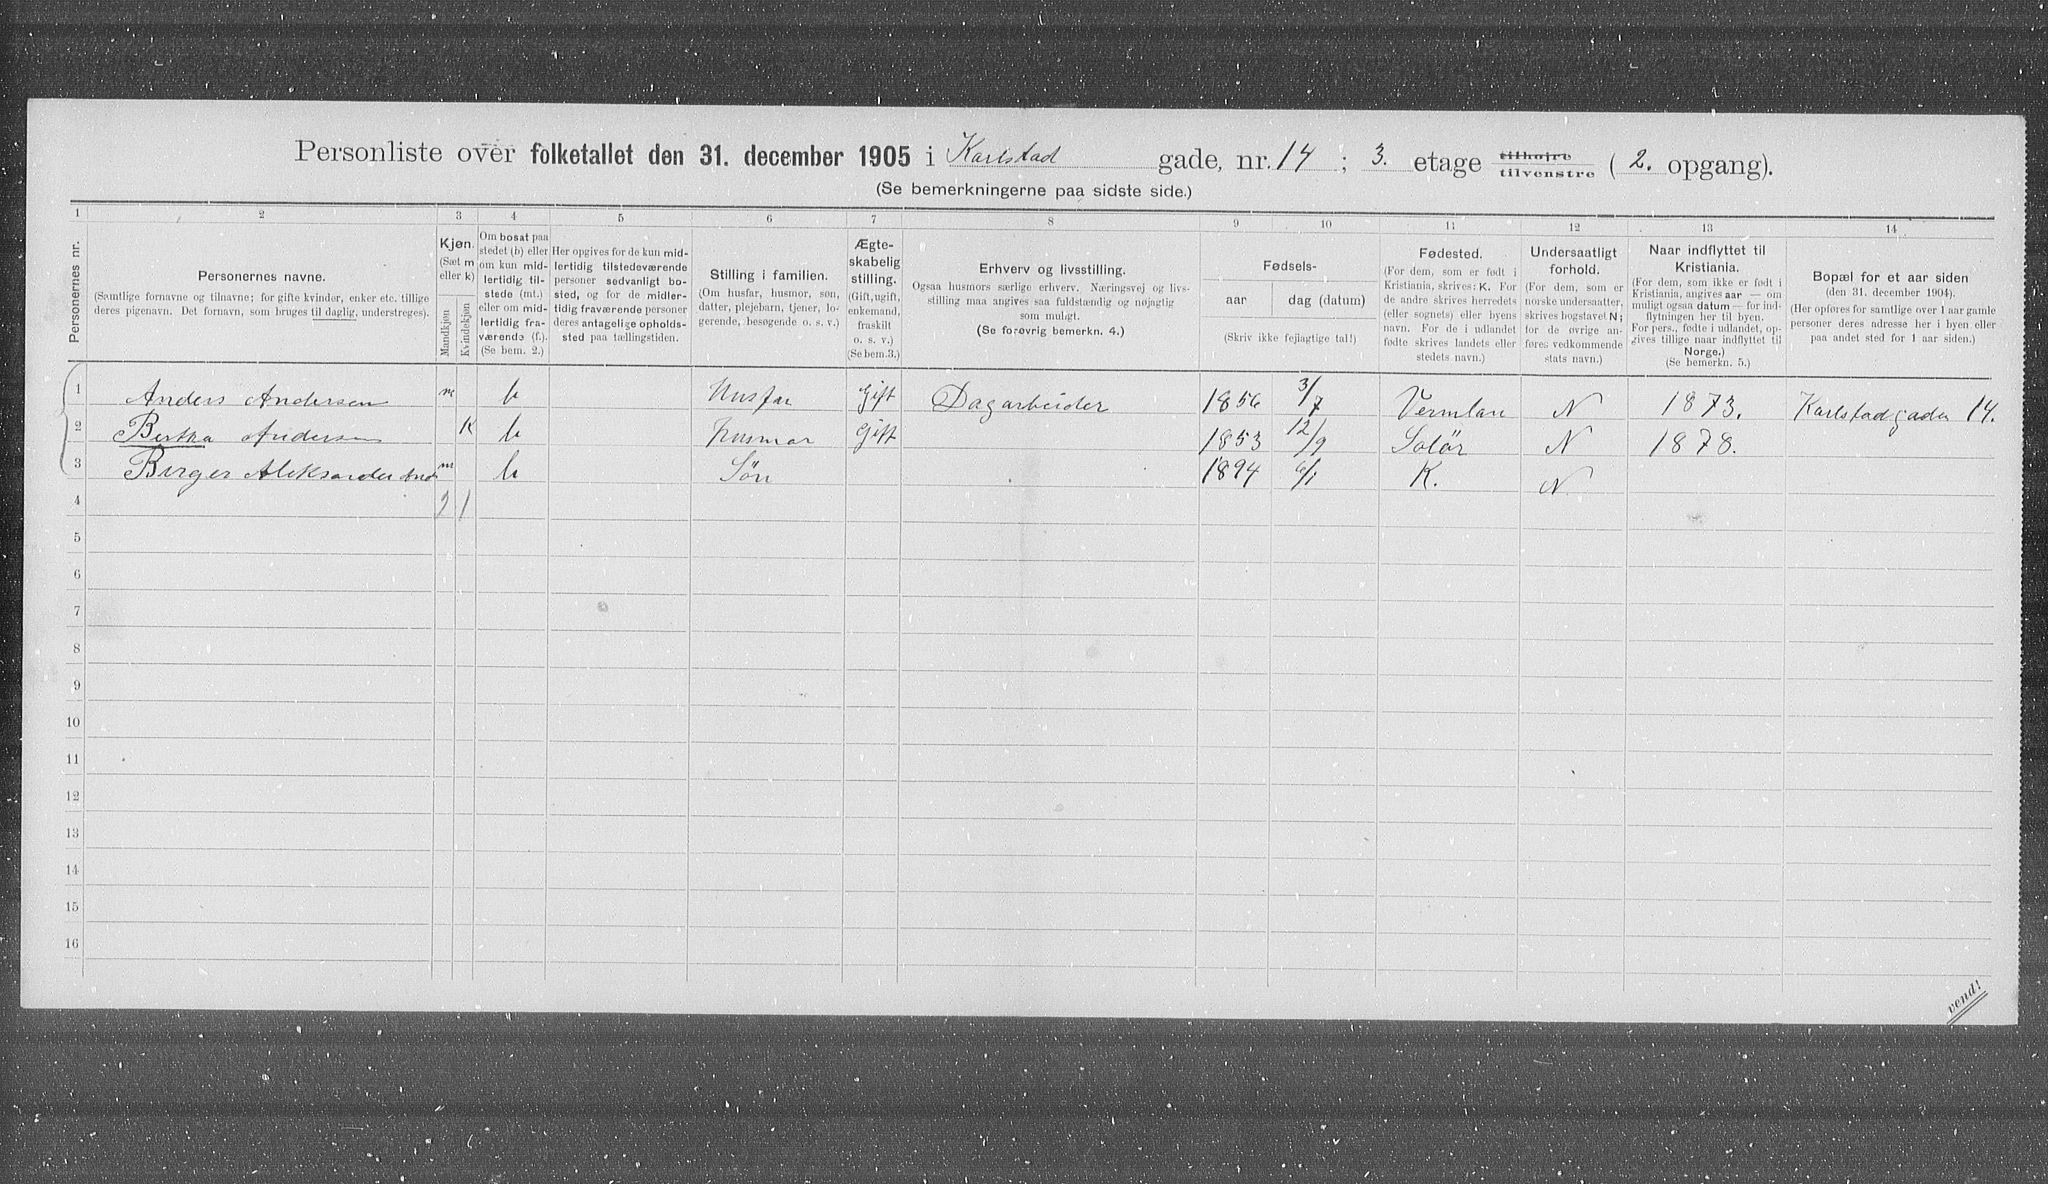 Personliste over folketallet den 31. december 1905 i Karlstad gade, nr. 14 ; 3. etage tilhøjre tilvenstre ( 2. opgang).
(Se bemerkningerne paa sidste side.)
1 2 3 4 5 6 7 8 9 10 11 12 13 14
Personernes nr.
Personernes navne.
(Samtlige fornavne og tilnavne; for gifte kvinder, enker etc. tillige
deres pigenavn. Det fornavn, som bruges til daglig, understreges).
Kjøn.
(Sæt m
eller k)
Mandkjøn
Kvindekjøn
Om bosat paa
stedet (b) eller
om kun mid-
lertidig til-
stede (mt.)
eller om mid-
lertidig fra-
værende (f.).
(Se bem. 2.)
Her opgives for de kun mid-
lertidig tilstedeværende
personer sedvanligt bo-
sted, og for de midler-
tidig fraværende personer
deres antagelige opholds-
sted paa tællingstiden.
Stilling i familien.
(Om husfar, husmor, søn,
datter, plejebarn, tjener, lo-
gerende, besøgende o. s. v.)
Ægte-
skabelig
stilling.
(Gift, ugift,
enkemand,
fraskilt
o. s. v.)
(Se bem.3.)
Erhverv og livsstilling.
Ogsaa husmors særlige erhverv. Næringsvej og livs-
stilling maa angives saa fuldstændig og nøjagtig
som muligt.
(Se forøvrig bemerkn. 4.)
Fødsels-
aar
dag (datum)
(Skriv ikke fejlagtige tal!)
Fødested.
(For dem, som er født i
Kristiania, skrives: K. For
de andre skrives herredets
(eller sognets) eller byens
navn. For de i udlandet
fødte skrives landets eller
stedets navn.)
Undersaatligt
forhold.
(For dem, som er
norske undersaatter,
skrives bogstavet N;
for de øvrige an-
føres vedkommende
stats navn.)
Naar indflyttet til
Kristiania.
(For dem, som ikke er født i
Kristiania, angives aar — om
muligt ogsaa datum — for ind-
flytningen her til byen.
For pers., fødte i udlandet, op-
gives tillige naar indflyttet til
Norge.)
(Se bemerkn. 5.)
Bopæl for et aar siden
(den 31. december 1904).
(Her opføres for samtlige over 1 aar gamle
personer deres adresse her i byen eller
paa andet sted for 1 aar siden.)
1 Anders Andersen m b Husfar Gift Dagarbeider 1856 3/7 Vermlan N 1873. Karlstadgaden 14.
2 Bertha Andersen K b husmor Gift 1853 12/9 Solør N 1878.
3 Birger Aleksander And m b Søn 1894 6/1 K. N
4 2 1
5
6
7
8
9
10
11
12
13
14
15
16
vend!